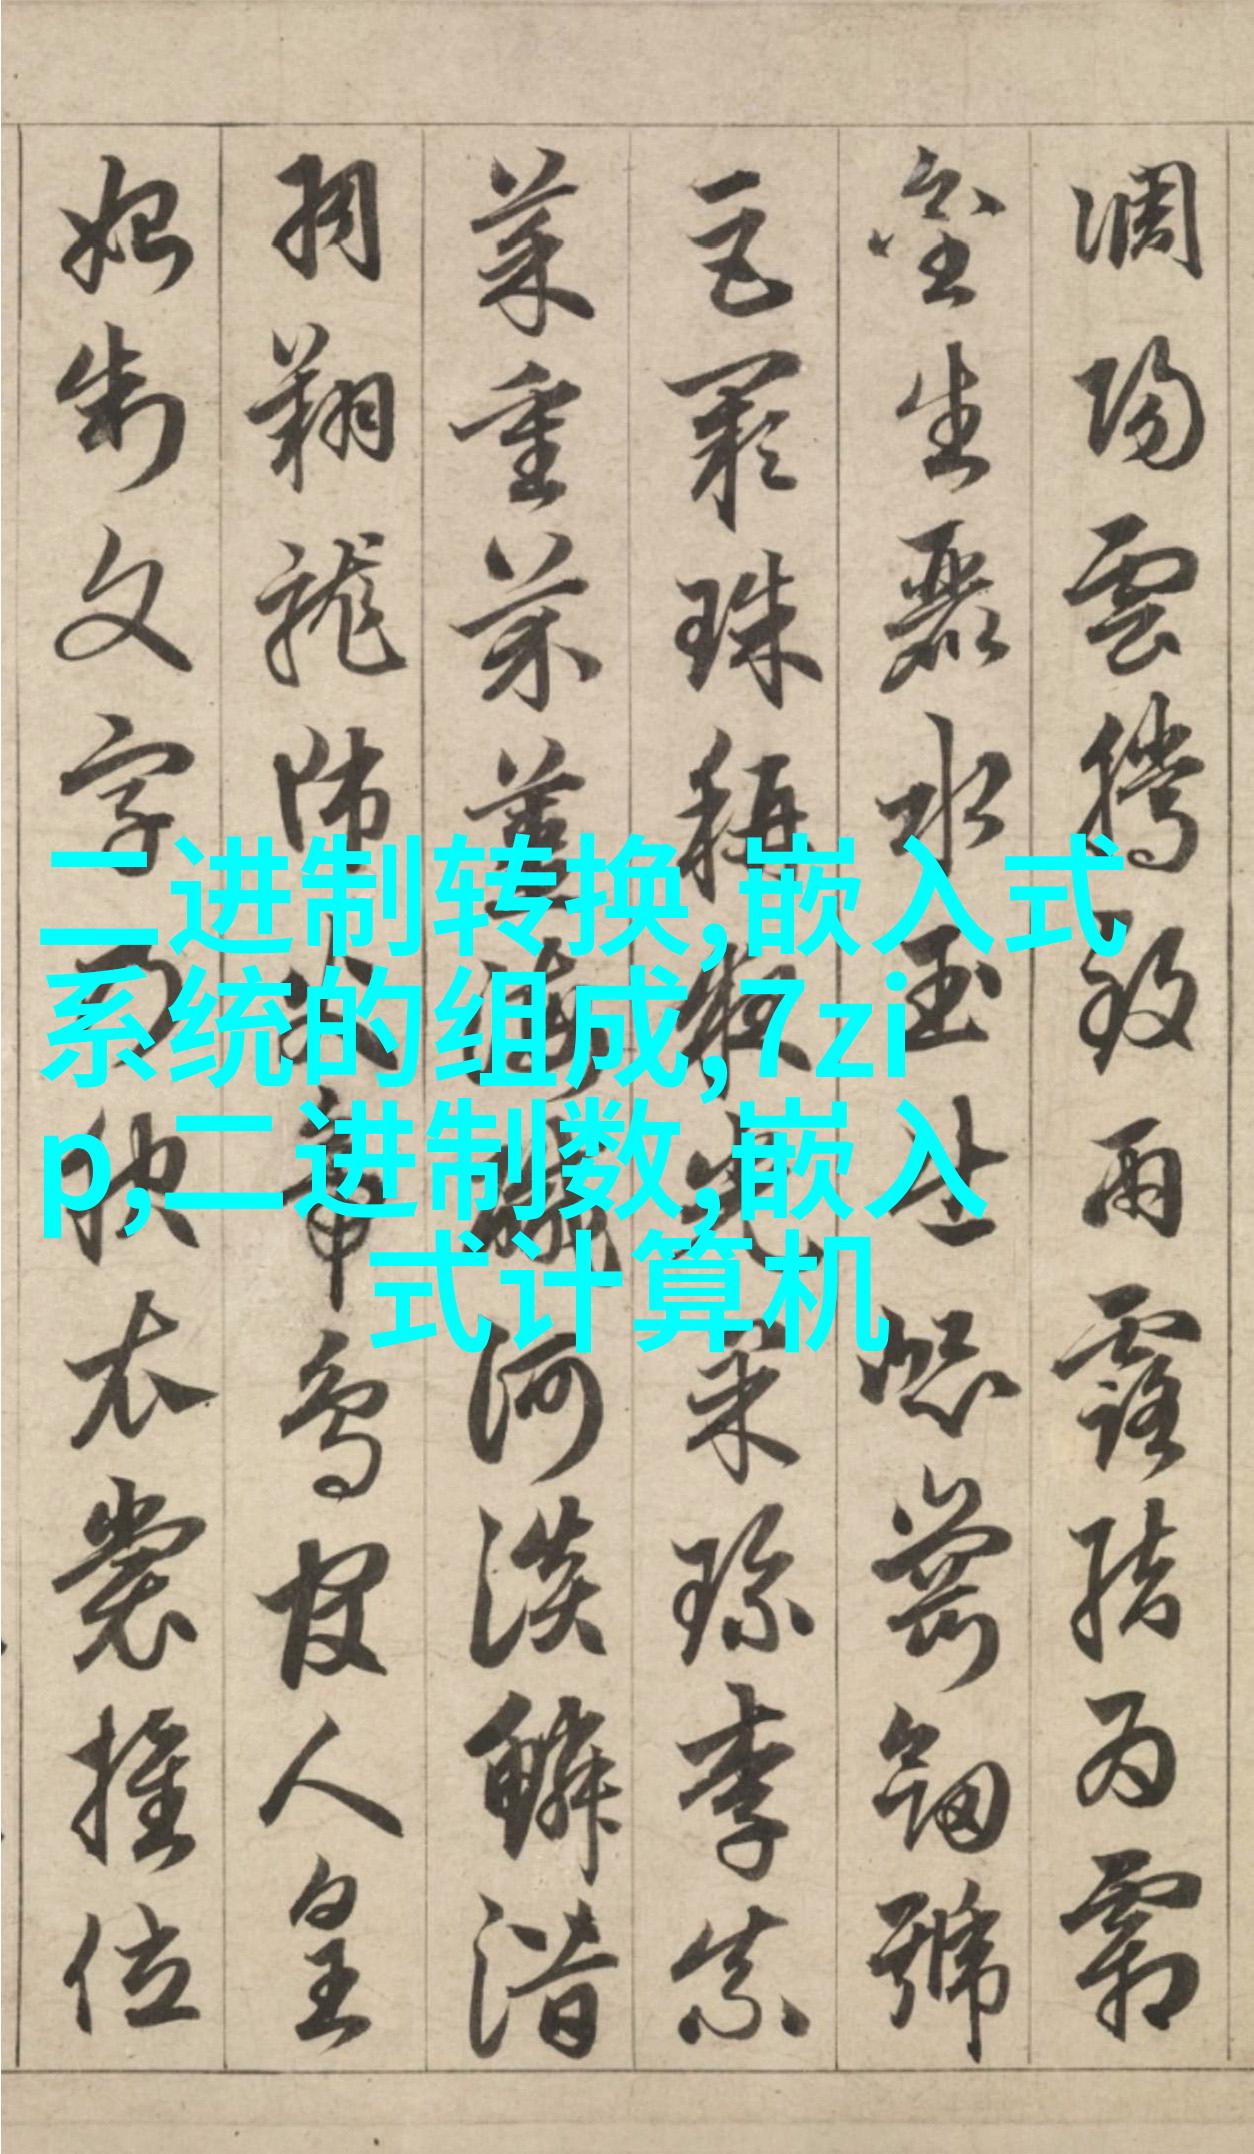 調陽雲騰致雨露結為霜
金生麗水玉出崑崗劍號
巨闕珠稱夜光菓珍李柰
菜重芥薑海鹹河淡鱗潛
羽翔龍師火帝鳥官人皇
始制文字乃服衣裳推位
二进制转换,嵌入式
系统的组成,7zi
p,二进制数,嵌入
式计算机